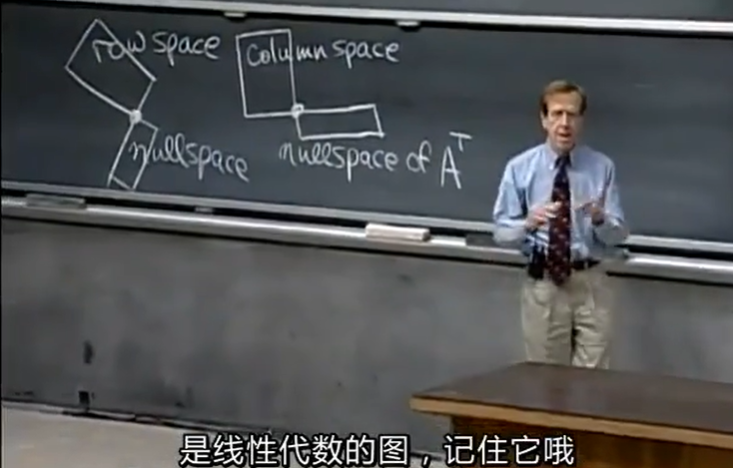 row space
column space
nullspace
nullspace of Aᵀ
是线性代数的图，记住它哦